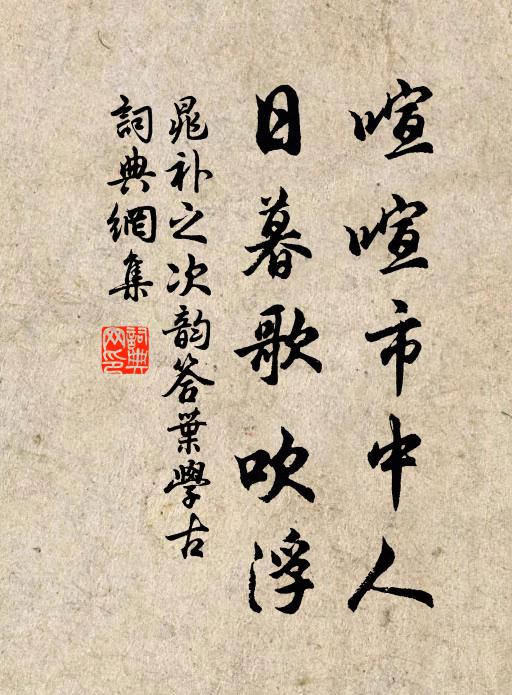 喧喧市中人
日暮歌吹浮
晁补之次韵答葉學古
詞典網集
詞典
网印